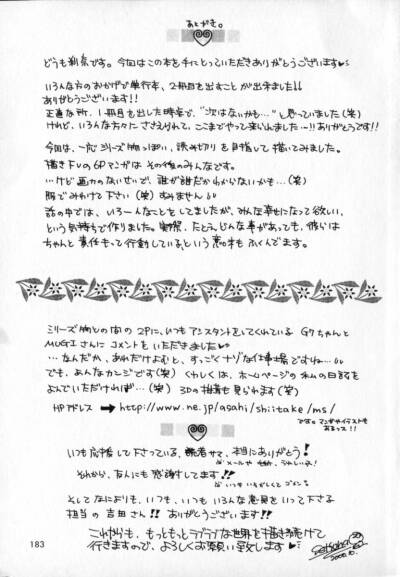 あとがき。
どうも刹奈です。今回はこの本を手にとっていただきありがとうございます♥
いろんな方のおかげで単行本、2冊目を出すことが出来ました!!
ありがとうございます!!
正直な所、1冊目を出した時点で、"次はないかも…"と思っていました(笑)
けれど、いろんな方々にささえられて、ここまでやって来られました…!!ありがとうです!!
今回は、一応シリーズ物っぽい、読み切りを目指して描いてみました。
描き下しの6Pマンガはその後のみんなです。
…けど画力のないせいで、誰が誰だかわからないかも…(笑)
服でみわけて下さい(笑)すみません
話の中では、いろーんなことをしてましたが、みんな幸せになって欲しい、
という気持ちで作りました。実際、たとえどんな事があっても、彼らは
ちゃんと責任もって行動している、という意味もふくんでます。
シリーズ物との間の2Pに、いつもアシスタントをしてくれているG7ちゃんと
MUGIさんにコメントをいただきました♥
…なんだか、あれだけよむと、すっごくナゾな仕事場ですね…
でも、あんなカンジです(笑)くわしくは、ホームページの私の日記を
よんでいただければ…(笑)3Dの描写も見られます(笑)
HPアドレス → http://www.ne.jp/asahi/shiitake/ms/
です。マンガやイラストも
あるヨ!!
いつも応援して下さっている、読者サマ、本当にありがとう!
それから、友人にも感謝してます!!
いつもいそがしくてゴメン
そしてなによりも、いつも、いつもいろんな意見をいって下さる
担当の吉田さん!!ありがとうございます!!
これからも、もっともっとラブラブな世界を描き続けて
行きますので、よろしくお願い致します♥
183